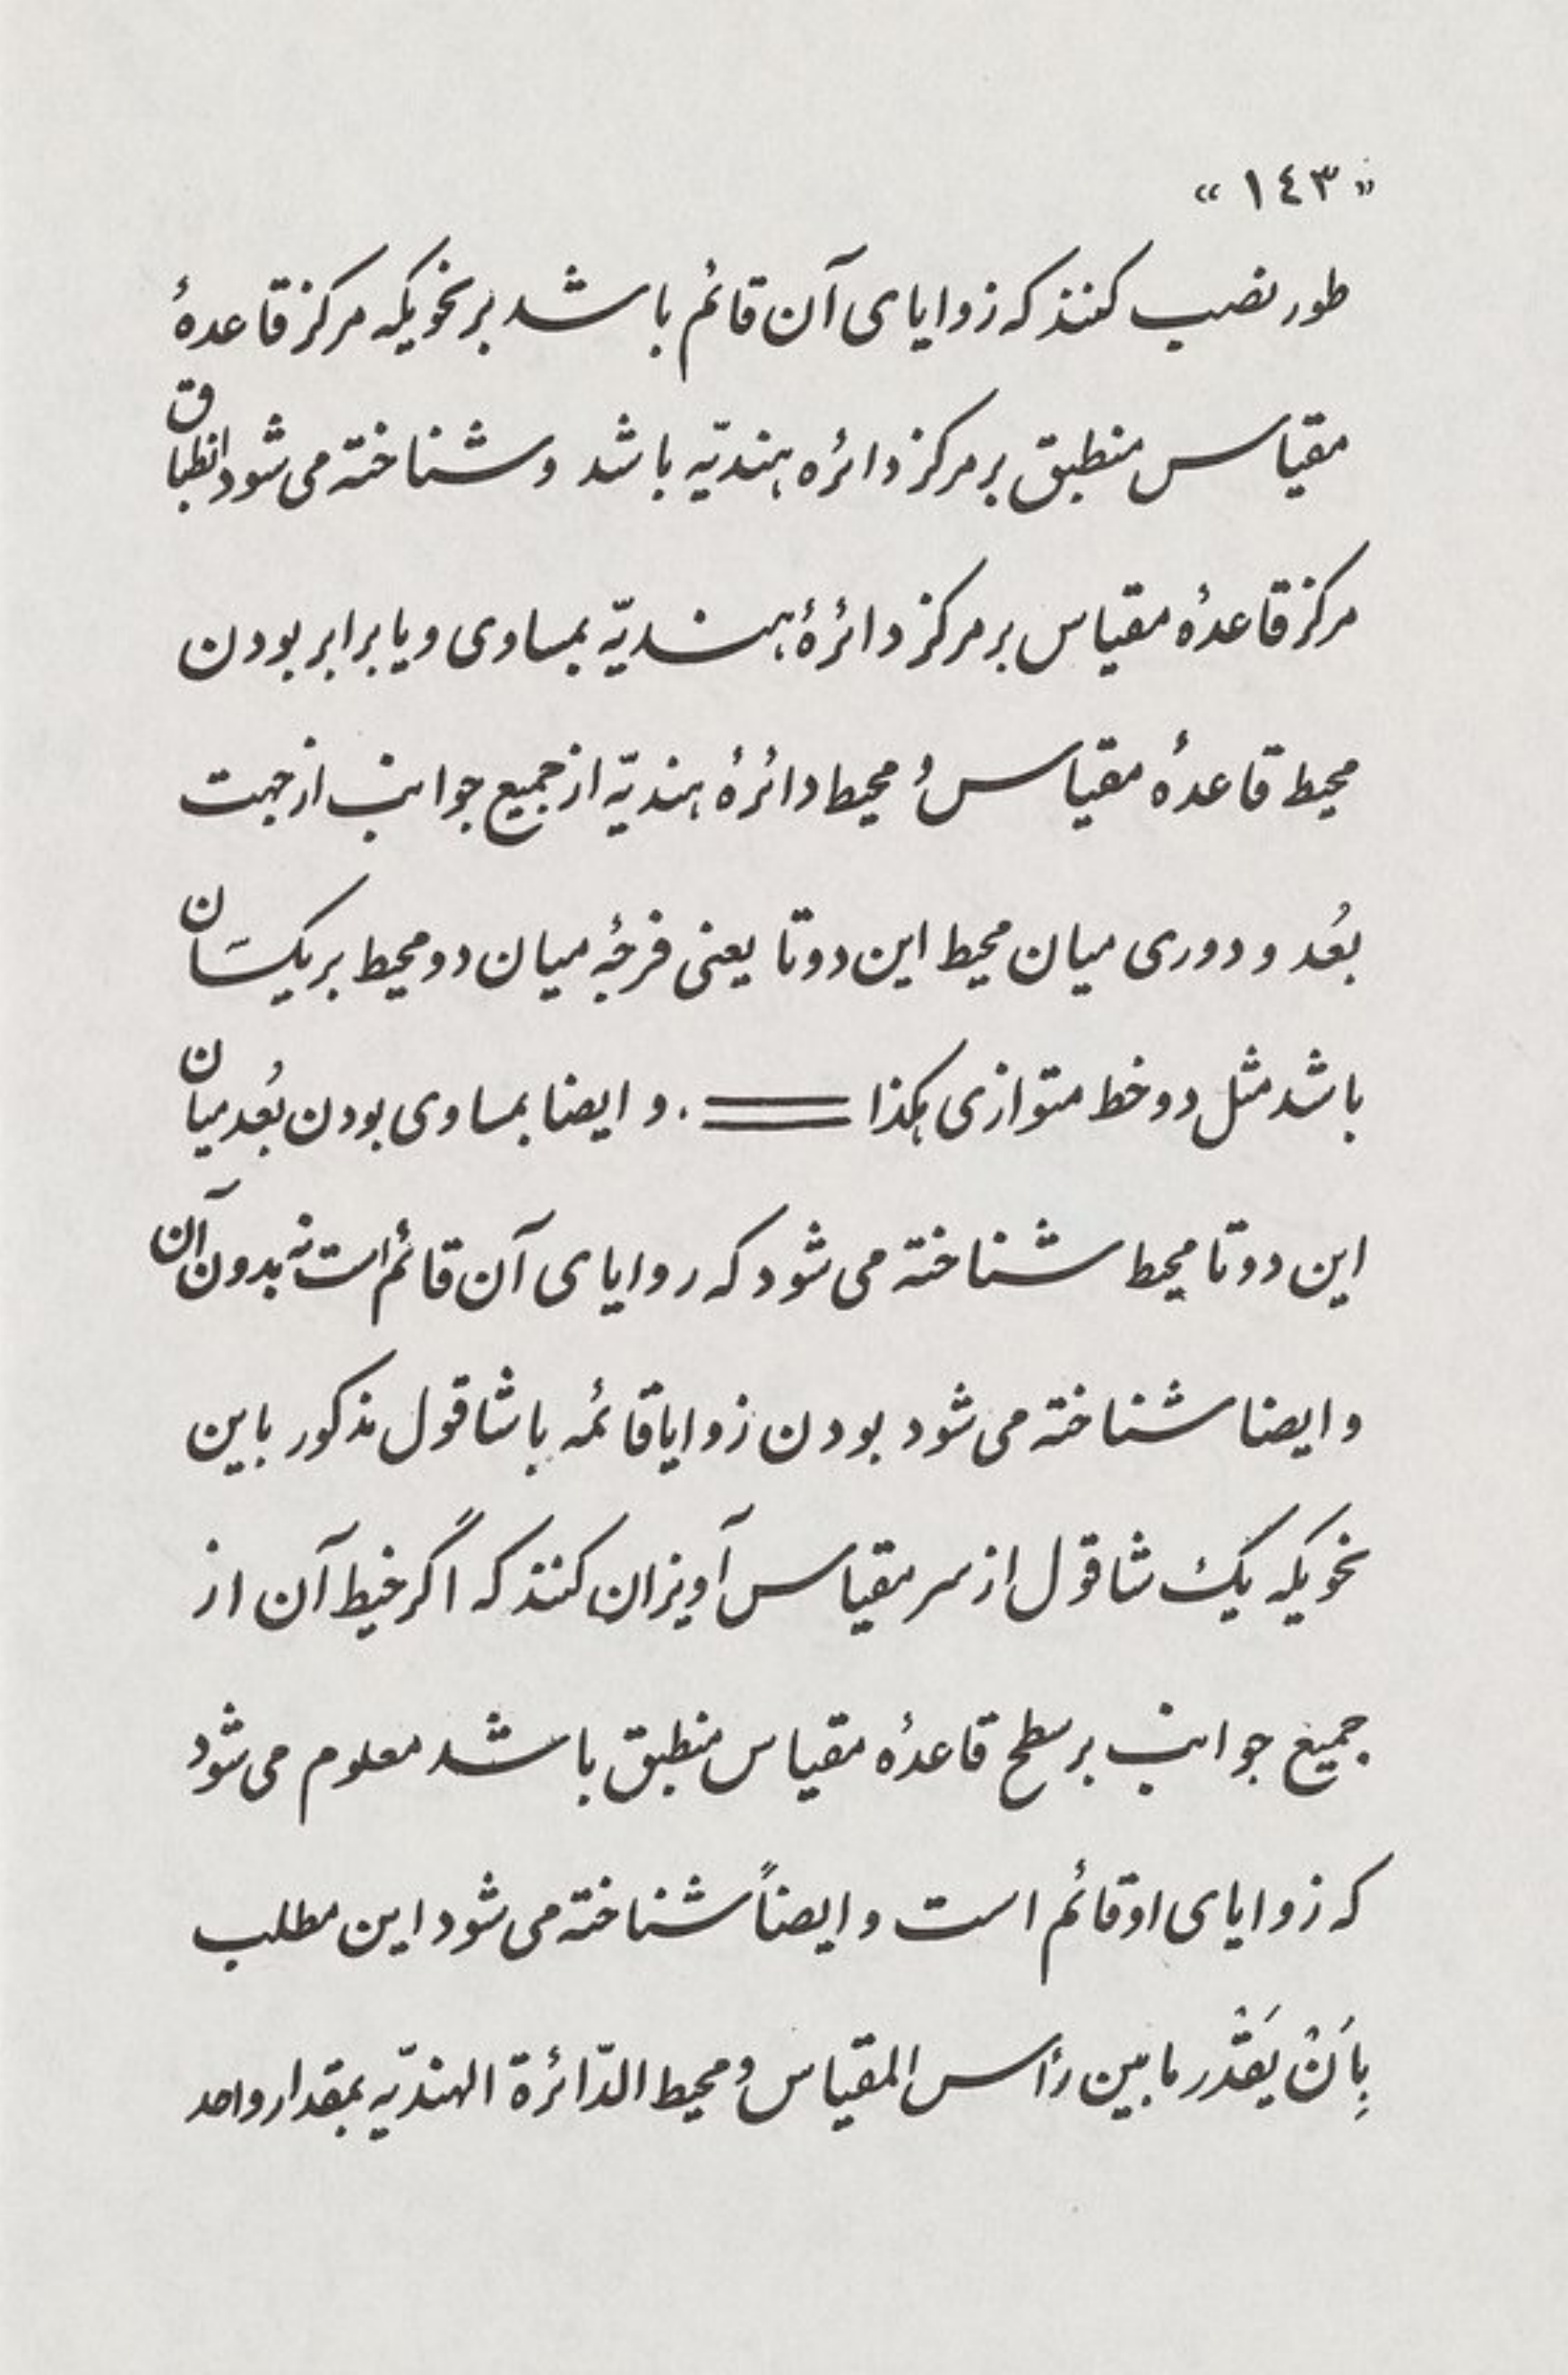 « ١٤٣ »
طور نصب کنند که زوایای آن قائم باشد بر نحویکه مرکز قاعدهٔ
مقیاس منطبق بر مرکز دائره هندیّه باشد و شناخته می شود انطباق
مرکز قاعدهٔ مقیاس بر مرکز دائرهٔ هندیّه بمساوی و یا برابر بودن
محیط قاعدهٔ مقیاس وُ محیط دائرهٔ هندیّه از جمیع جوانب از جهت
بُعد و دوری میان محیط این دوتا یعنی فرجهٔ میان دو محیط بر یکسَان
باشد مثل دو خط متوازی هکذا ═══ . و ایضا بمساوی بودن بُعد میان
این دوتا محیط شناخته می شود که روایای آن قائم است نه بدون آن
و ایضا شناخته می شود بودن زوایا قائمه با شاقول مذکور باین
نحویکه یک شاقول از سر مقیاس آویزان کنند که اگر خیط آن از
جمیع جوانب بر سطح قاعدهٔ مقیاس منطبق باشد معلوم می شود
که زوایای او قائم است و ایضاً شناخته می شود این مطلب
بِاَنْ یَقْدر ما بین رأس المقیاس و محیط الدّائرة الهندیّه بمقدار واحد